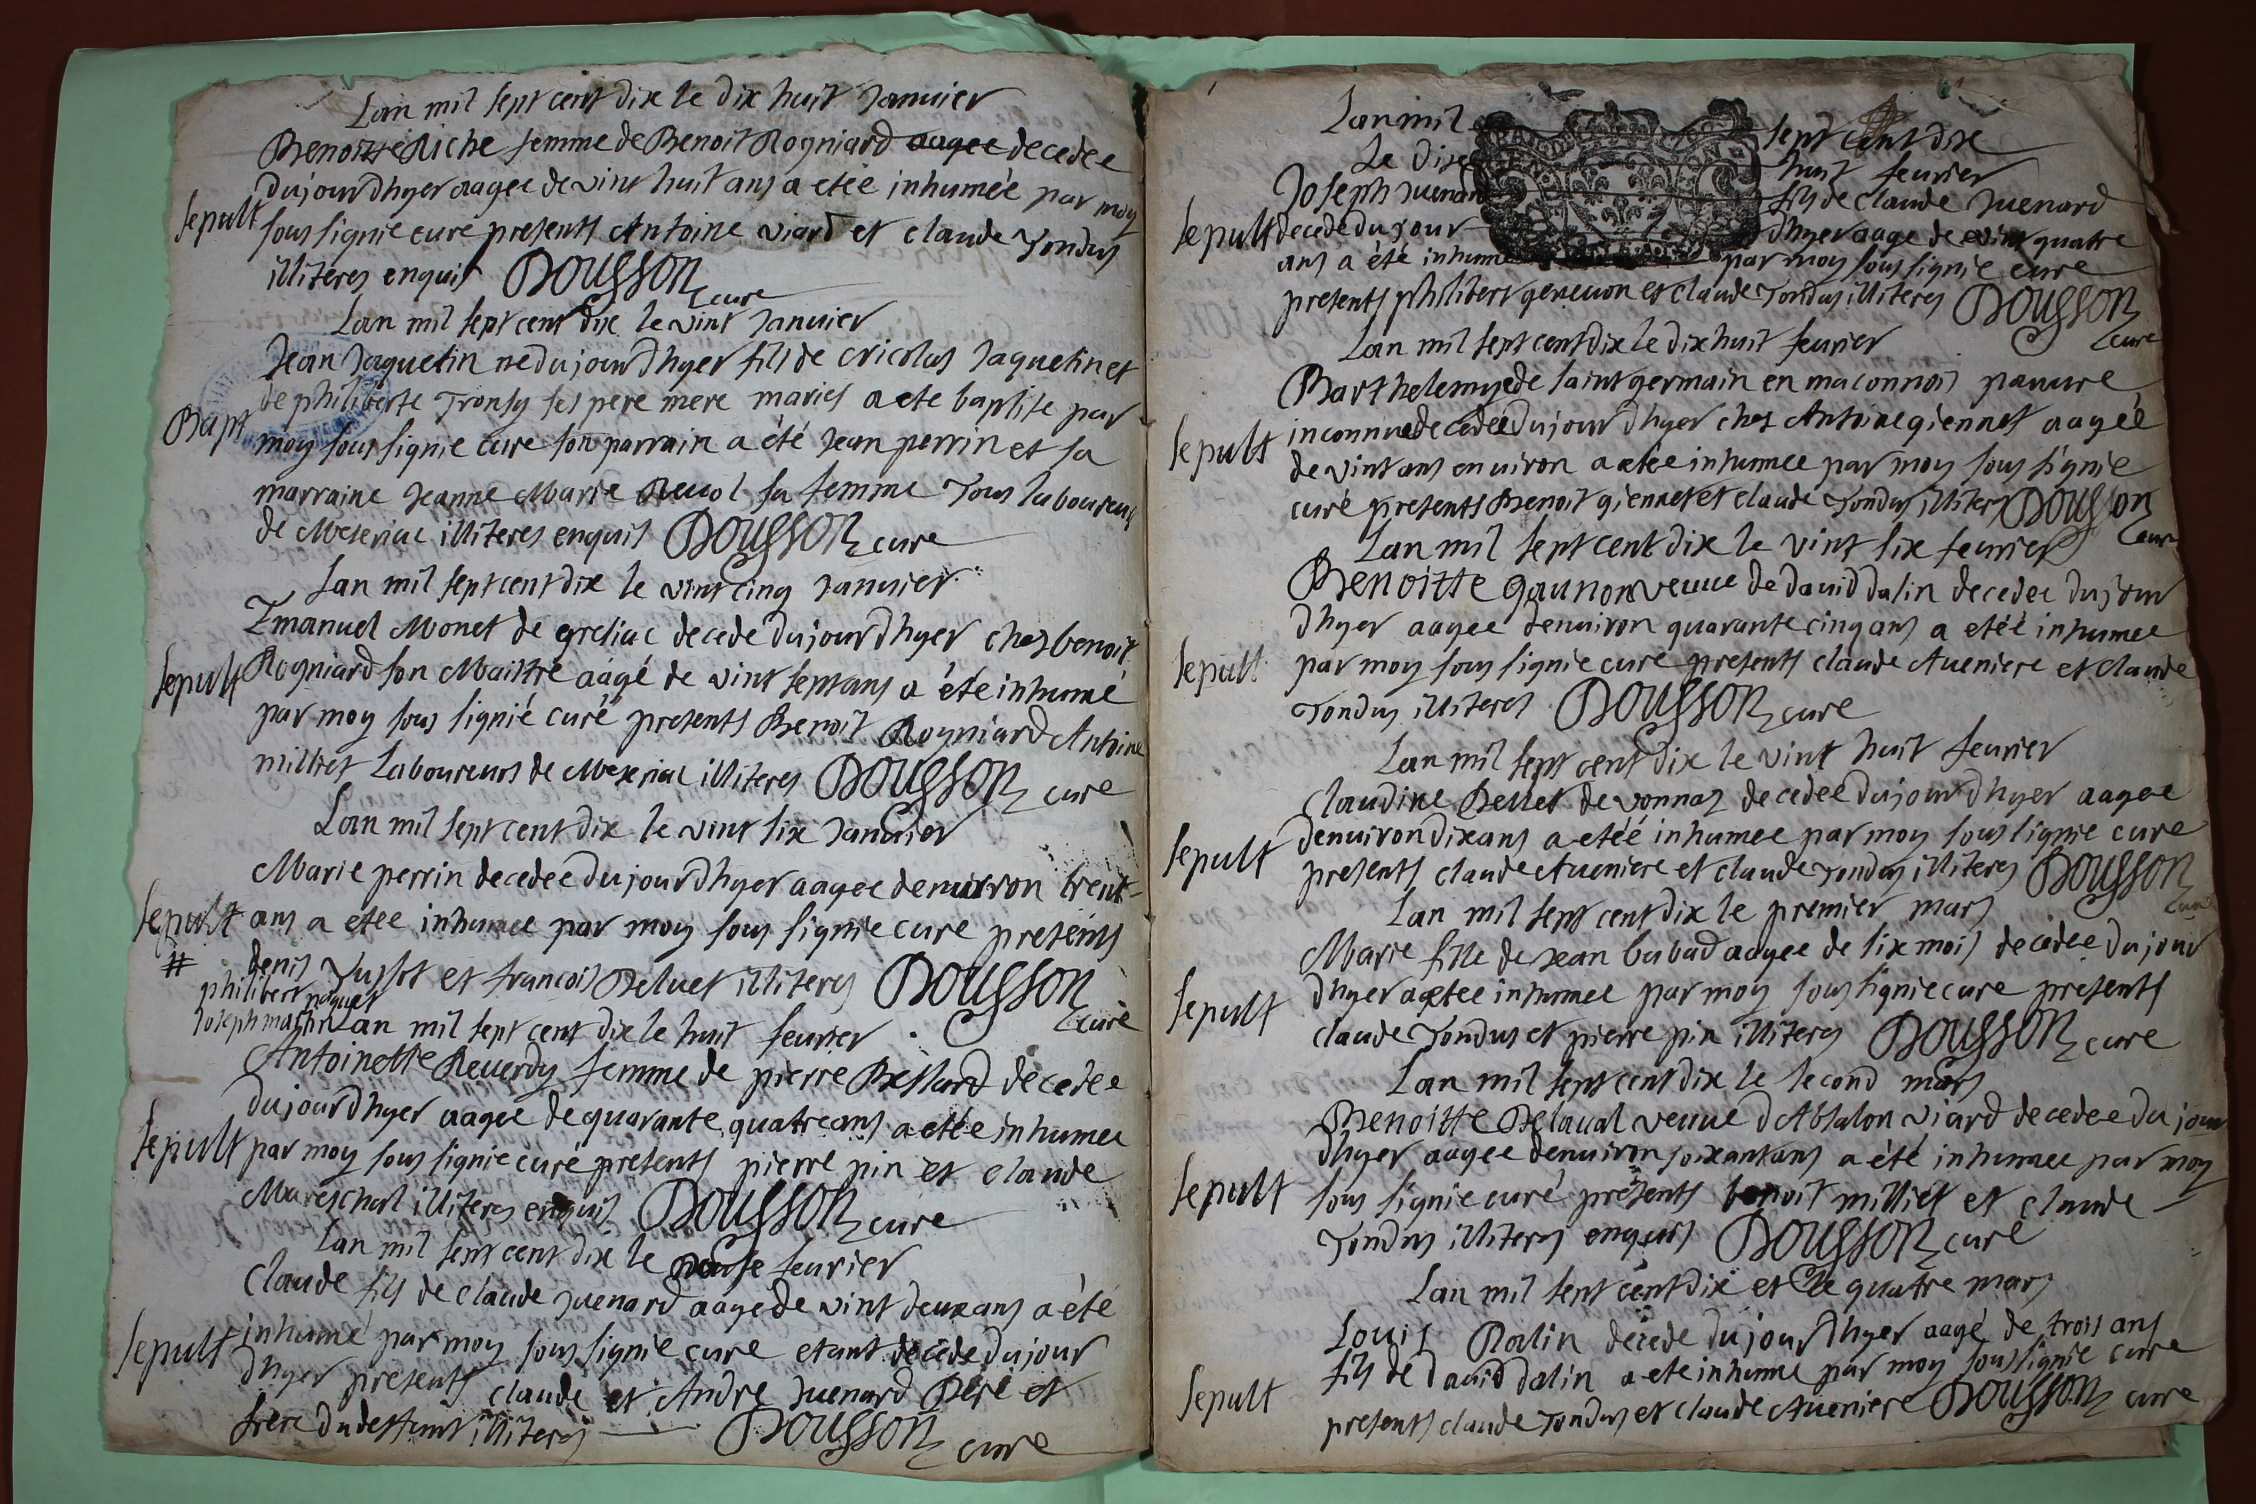 Lan mil sept cent dix le dix huit Janvier
Benoitte Riche femme de Benoit Rogniard aagee decedee
dujourdhyer aagee de vint huit ans a etée inhumée par moy
sepult sous signie curé presents Antoine viard et claude Tondus
illiteres enquis DOUSSON cure
Lan mil sept cent dix le vint Janvier
Jean Jaquetin ne dujourdhyer fils de Nicolas Jaquetin et
de philiberte Tronsy ses pere mere mariés a ete baptise par
Bapt moy sous signie cure son parrain a été Jean perrin et sa
marraine Jeanne Marie Revol sa femme Tous laboureurs
de Meseriac illiteres enquis DOUSSON cure
Lan mil sept cent dix le vint cinq Janvier
Emanuel Monet de greliac decede dujourdhyer chez benoit
sepult Rogniard son Maistre aagé de vint sept ans a été inhumé
par moy sous signié curé presents Benoit Rogniard Antoine
milliet Laboureurs de Mexeriac illiteres DOUSSON cure
Lan mil sept cent dix le vint six Janvier
Marie perrin decedee dujourdhyer aagee denviron trent
sepult ans a etee inhumee par moy sous signie cure presents
# denis Juslot et francois Beluet illiteres DOUSSON cure
philibert paquet
Joseph martin
Lan mil sept cent dix le huit fevrier
Antoinette Reverdy femme de pierre Bestard decedee
dujourdhyer aagee de quarante quatre ans a etée inhumee
sepult par moy sous signie curé presents pierre pin et claude
Mareschal illiteres enquis DOUSSON cure
Lan mil sept cent dix le fevrier
Claude fils de claude Juenard aagé de vint deux ans a été
sepult inhumé par moy sous signié cure etant décédé dujour
dhyer presents claude et André Juenard Pére et
frere du deffunt illiteres DOUSSON cure
Lan mil sept cent dix
Le dix huit fevrier
Joseph Juenard fils de claude Juenard
sepult decede dujour dhyer aage de vint quatre
ans a été inhumé par moy sous signie cure
presents philibert genevon et claude Tondus illiteres DOUSSON cure
Lan mil sept cent dix le dix huit fevrier
Barthelemye de saint germain en maconnois pauvre
sepult inconnue decedée dujourdhyer chez Antoine giennet aagéé
de vint ans environ a etee inhumee par moy sous signie
curé presents Benoit giennet et claude Tondus illiteres DOUSSON cure
Lan mil sept cent dix le vint six fevrier
Benoitte gaunon veuve de david dalin decedee dujour
dhyer aagee denviron quarante cinq ans a etéé inhumee
sepult par moy sous signie cure presents claude Aveniere et claude
Tondus illiteres DOUSSON cure
Lan mil sept cent dix le vint huit fevrier
Claudine Bellet de vonnaz decedée dujourdhyer aagee
sepult denviron dix ans a etéé inhumee par moy sous signie cure
presents claude Aveniere et claude Tondus illiteres DOUSSON cure
Lan mil sept cent dix le premier mars
Marie fille de Jean babad aagee de six mois decedee dujour
sepult dhyer a etee inhumee par moy sous signie cure presents
claude Tondus et pierre pin illiteres DOUSSON cure
Lan mil sept cent dix le second mars
Benoitte Delaval veuve dAbsalon viard decedee du jour
dhyer aagee denviron soixant ans a été inhumee par moy
sepult sous signie curé présents benoit milliet et claude
Tondus illiteres enquis DOUSSON curé
Lan mil sept cent dix et le quatre mars
Louis Dalin décede dujourdhyer aagé de trois ans
fils de david dalin a ete inhume par moy sous signie cure
sepult presents claude Tondus et claude Aveniere DOUSSON cure